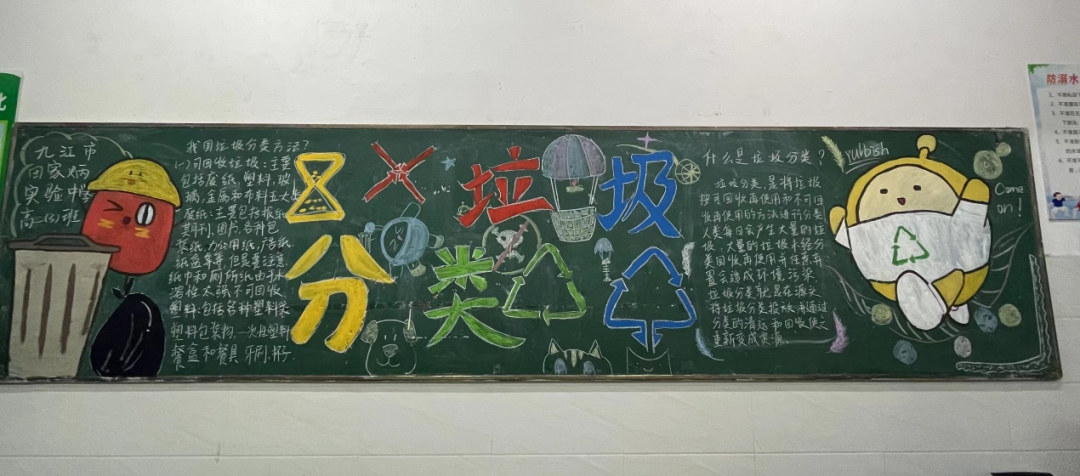 九江市
田家炳
实验中学
高一(3)班
我国垃圾分类方法?
(一)可回收垃圾:主要
包括废纸,塑料,玻
璃,金属和布料五大类
废纸:主要包括报纸
期刊,图书,各种包
装纸,办公用纸,广告纸
纸盒等等,但是要注意
纸巾和厕所纸由于水
溶性太强不可回收
塑料:包括各种塑料袋
塑料包装物,一次性塑料
餐盒和餐具,牙刷,杯子.
垃圾
分类
什么是垃圾分类?
垃圾分类,是将垃圾
按可回收再使用和不可回
收再使用的方法进行分类
人类每日会产生大量的垃
圾,大量的垃圾未经分
类回收再使用并任意弃
置会造成环境污染
垃圾分类就是在源头
将垃圾分类投放,并通过
分类的清运和回收使之
重新变成资源.
rubbish
Come
on!
北
防溺水